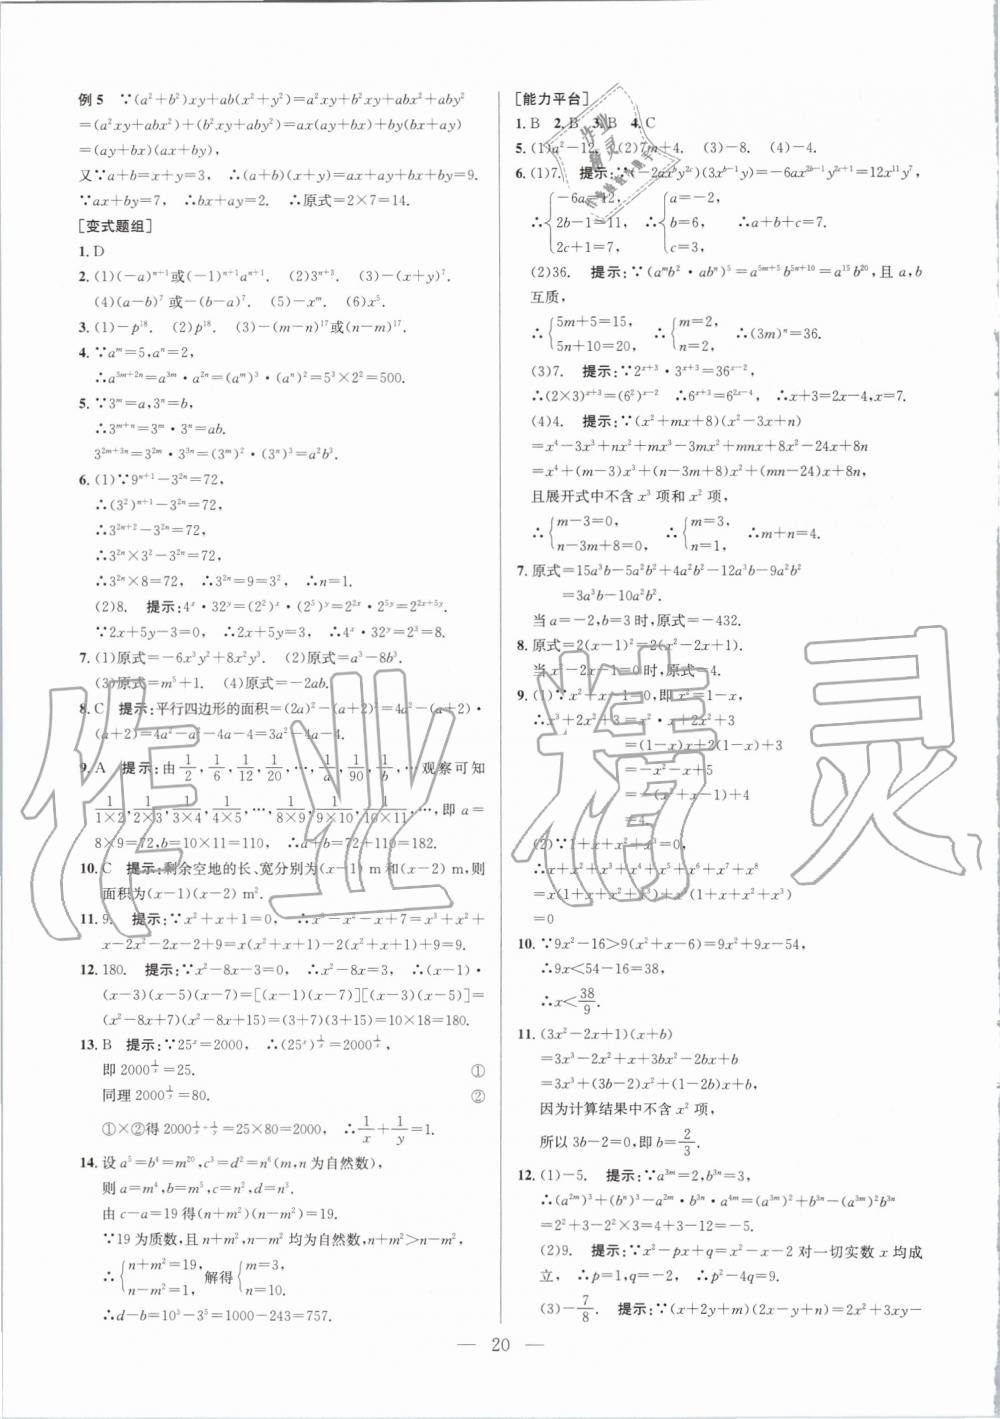 例5　∵(a²+b²)xy+ab(x²+y²)=a²xy+b²xy+abx²+aby²
=(a²xy+abx²)+(b²xy+aby²)=ax(ay+bx)+by(bx+ay)
=(ay+bx)(ax+by),
又∵a+b=x+y=3,　∴(a+b)(x+y)=ax+ay+bx+by=9.
∵ax+by=7,　∴bx+ay=2,　∴原式=2×7=14.
[变式题组]
1. D
2. (1)(-a)ⁿ⁺¹或(-1)ⁿ⁺¹aⁿ⁺¹.　(2)3ⁿ⁺³.　(3)-(x+y)⁷.
(4)(a-b)⁷或-(b-a)⁷.　(5)-xᵐ.　(6)x⁵.
3. (1)-p¹⁸.　(2)p¹⁸.　(3)-(m-n)¹⁷或(n-m)¹⁷.
4. ∵aᵐ=5,aⁿ=2,
∴a³ᵐ⁺²ⁿ=a³ᵐ·a²ⁿ=(aᵐ)³·(aⁿ)²=5³×2²=500.
5. ∵3ᵐ=a,3ⁿ=b,
∴3ᵐ⁺ⁿ=3ᵐ·3ⁿ=ab.
3²ᵐ⁺³ⁿ=3²ᵐ·3³ⁿ=(3ᵐ)²·(3ⁿ)³=a²b³.
6. (1)∵9ⁿ⁺¹-3²ⁿ=72,
∴(3²)ⁿ⁺¹-3²ⁿ=72,
∴3²ⁿ⁺²-3²ⁿ=72,
∴3²ⁿ×3²-3²ⁿ=72,
∴3²ⁿ×8=72,　∴3²ⁿ=9=3²,　∴n=1.
(2)8.　提示:4ˣ·32ʸ=(2²)ˣ·(2⁵)ʸ=2²ˣ·2⁵ʸ=2²ˣ⁺⁵ʸ.
∵2x+5y-3=0,　∴2x+5y=3,　∴4ˣ·32ʸ=2³=8.
7. (1)原式=-6x³y²+8x²y³.　(2)原式=a³-8b³.
(3)原式=m⁵+1.　(4)原式=-2ab.
8. C　提示:平行四边形的面积=(2a)²-(a+2)²=4a²-(a+2)·
(a+2)=4a²-a²-4a-4=3a²-4a-4.
9. A　提示:由1/2,1/6,1/12,1/20,…,1/a,1/90,1/b,…观察可知
1/(1×2),1/(2×3),1/(3×4),1/(4×5),…,1/(8×9),1/(9×10),1/(10×11),…,即a=
8×9=72,b=10×11=110,　∴a+b=72+110=182.
10. C　提示:剩余空地的长、宽分别为(x-1) m和(x-2) m,则
面积为(x-1)(x-2) m².
11. 9.　提示:∵x²+x+1=0,　∴x³-x²-x+7=x³+x²+
x-2x²-2x-2+9=x(x²+x+1)-2(x²+x+1)+9=9.
12. 180.　提示:∵x²-8x-3=0,　∴x²-8x=3,　∴(x-1)·
(x-3)(x-5)(x-7)=[(x-1)(x-7)][(x-3)(x-5)]=
(x²-8x+7)(x²-8x+15)=(3+7)(3+15)=10×18=180.
13. B　提示:∵25ˣ=2000,　∴(25ˣ)^(1/x)=2000^(1/x),
即2000^(1/x)=25.　①
同理2000^(1/y)=80.　②
①×②得2000^(1/x+1/y)=25×80=2000,　∴1/x+1/y=1.
14. 设a⁵=b⁴=m²⁰,c³=d²=n⁶(m,n为自然数),
则a=m⁴,b=m⁵,c=n²,d=n³.
由c-a=19得(n+m²)(n-m²)=19.
∵19为质数,且n+m²,n-m²均为自然数,n+m²>n-m²,
∴{n+m²=19, n-m²=1, 解得{m=3, n=10.
∴d-b=10³-3⁵=1000-243=757.
[能力平台]
1. B　2. B　3. B　4. C
5. (1)a²-12.　(2)7m+4.　(3)-8.　(4)-4.
6. (1)7.　提示:∵(-2axᵇy²ᶜ)(3xᵇ⁻¹y)=-6ax²ᵇ⁻¹y²ᶜ⁺¹=12x¹¹y⁷,
∴{-6a=12, 2b-1=11, 2c+1=7,　∴{a=-2, b=6, c=3.　∴a+b+c=7.
(2)36.　提示:∵(aᵐb²·abⁿ)⁵=a⁵ᵐ⁺⁵b⁵ⁿ⁺¹⁰=a¹⁵b²⁰,且a,b
互质,
∴{5m+5=15, 5n+10=20,　∴{m=2, n=2.　∴(3m)ⁿ=36.
(3)7.　提示:∵2ˣ⁺³·3ˣ⁺³=36ˣ⁻²,
∴(2×3)ˣ⁺³=(6²)ˣ⁻²　∴6ˣ⁺³=6²ˣ⁻⁴,　∴x+3=2x-4,　∴x=7.
(4)4.　提示:∵(x²+mx+8)(x²-3x+n)
=x⁴-3x³+nx²+mx³-3mx²+mnx+8x²-24x+8n
=x⁴+(m-3)x³+(n-3m+8)x²+(mn-24)x+8n,
且展开式中不含x³项和x²项,
∴{m-3=0, n-3m+8=0,　∴{m=3, n=1,　∴m+n=4.
7. 原式=15a³b-5a²b²+4a²b²-12a³b-9a²b²
=3a³b-10a²b².
当a=-2,b=3时,原式=-432.
8. 原式=2(x-1)²=2(x²-2x+1).
当x²-2x-1=0时,原式=4.
9. (1)∵x²+x-1=0,即x²=1-x,
∴x³+2x²+3=x·x²+2x²+3
=(1-x)x+2(1-x)+3
=-x²-x+5
=-(x²+x-1)+4
=4.
(2)∵1+x+x²+x³=0,
∴x+x²+x³+x⁴+x⁵+x⁶+x⁷+x⁸
=x(1+x+x²+x³)+x⁵(1+x+x²+x³)
=0
10. ∵9x²-16>9(x²+x-6)=9x²+9x-54,
∴9x<54-16=38,
∴x<38/9.
11. (3x²-2x+1)(x+b)
=3x³-2x²+x+3bx²-2bx+b
=3x³+(3b-2)x²+(1-2b)x+b.
因为计算结果中不含x²项,
所以3b-2=0,即b=2/3.
12. (1)-5.　提示:∵a³ᵐ=2,b³ⁿ=3,
∴(a²ᵐ)³+(bⁿ)³-a²ᵐ·b³ⁿ·a⁴ᵐ=(a³ᵐ)²+b³ⁿ-(a³ᵐ)²b³ⁿ
=2²+3-2²×3=4+3-12=-5.
(2)9.　提示:∵x²-px+q=x²-x-2对一切实数x均成
立,　∴p=1,q=-2,　∴p²-4q=9.
(3)-7/8.　提示:∵(x+2y+m)(2x-y+n)=2x²+3xy-
— 20 —
作业精灵